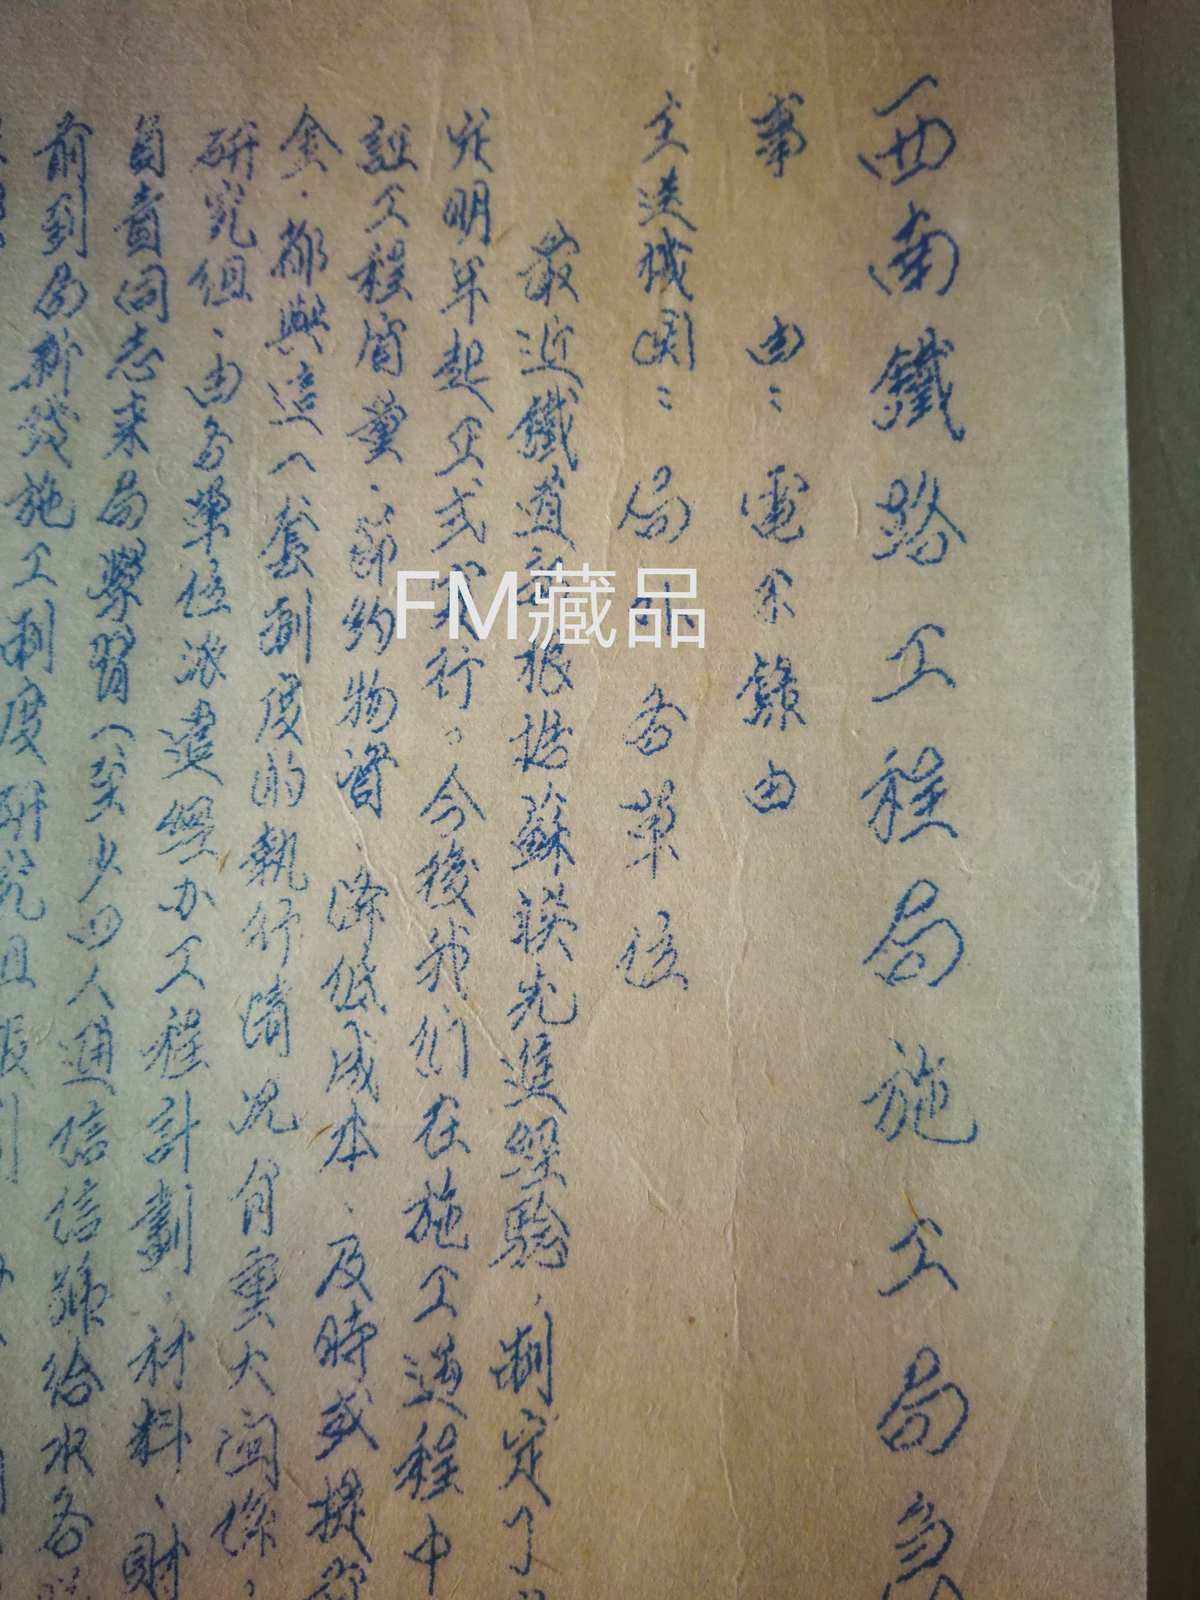 西南鐵路工程局施工局急
事 由：電不錄由
主送機関：局外各单位
最近鐵道部根據蘇联先進經驗，制定了
於明年起正式实行。今後我们在施工过程中
証工程質量、节約物資、降低成本、及時或提前
金，都與這一套制度的執行情况有重大関係，
研究組，由各单位派遣經办工程計劃、材料、財
負責同志来局學習（至少四人通信信號給水各
前到局
施工制度研究组
FM藏品